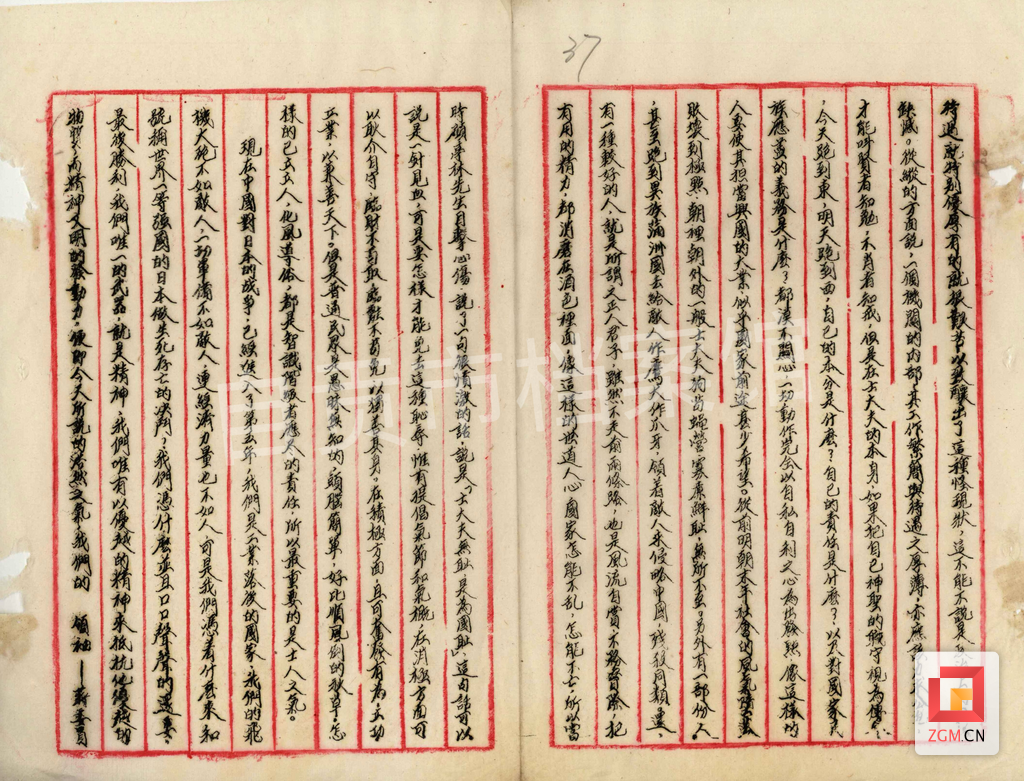 37
待遇就特別優厚有的就很艱苦以致釀出了這種慘現狀，這不能不說是
缺憾。從縱的方面說，一個機關的內部其工作繁簡與待遇之厚薄，亦應
才能叫賢者知勉，不肖者知戒，但是在士大夫的本身，如果把自己神聖的職守視為傳
，今天跑到東，明天跑到西，自己的本分是什麼？自己的責任是什麼？以及對國家民
族應盡的義務是什麼？都漠不關心一切動作完全以自私自利之心為出發點像這樣的
人要使其担當興國的大業似乎國家前途甚少希望。從前明朝末年社會的風氣
敗壞到極點朝裡朝外的一般士大夫狗苟蠅營寡廉鮮恥，無所不至，另外有一部份人
，甚至跑到異族滿洲國去給敵人作鷹犬作爪牙，領着敵人來侵略中國，殘殺同類，還
有一種較好的人，就是所謂文人君子，雖然不走前兩條路，也是風流自賞，不務實際，把
有用的精力，都消磨在酒色裡面，像這樣的世道人心，國家怎能不亂，怎能不亡，所以當
時顧亭林先生目擊心傷，說了一句很憤激的話，說是「士大夫無恥，是為國恥」這句話可以
說是一針見血，可是要怎樣才能免去這種恥辱，惟有提倡氣節和氣概，在消極方面可
以耿介自守，臨財不苟取，臨難不苟免，以獨善其身。在積極方面，且可奮發有為，立功
立業，以兼善天下。但是普通民眾是愚昧無知的，頭腦簡單，好比順風倒的牧草，怎
樣的已去去人，化風導俗，都是智識階級者應尽的責任，所以最重要的是士人之氣。
現在中國對日本的战爭，已經進入了第五年，我們是工業落後的國家，我們的飛
機大砲不如敵人，一切軍備不如敵人，連經濟力量也不如人，可是我們憑着什麼來和
號稱世界一等強國的日本做生死存亡的決鬥，我們憑什麼並且口口聲聲的說要
最後勝利，我們唯一的武器，就是精神，我們唯有以優越的精神來抵抗他優越的
物質，而精神文明的發動力，便即今天所說的浩然之氣，我們的　領袖——蔣委員
自贡市档案馆
ZGM.CN